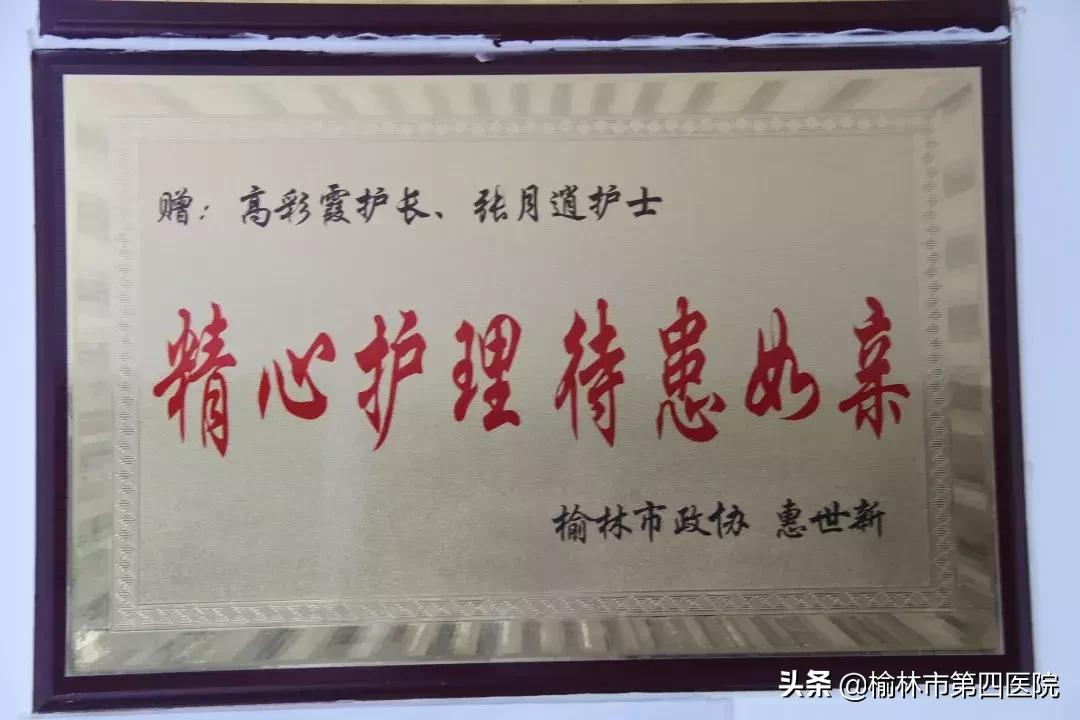 赠：高彩霞护长、张月逍护士
精心护理待患如亲
榆林市政协 惠世新
头条 @榆林市第四医院